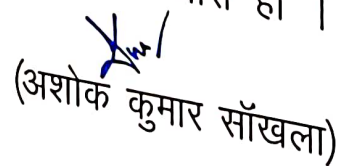 हो ।
(अशोक कुमार सॉखला)